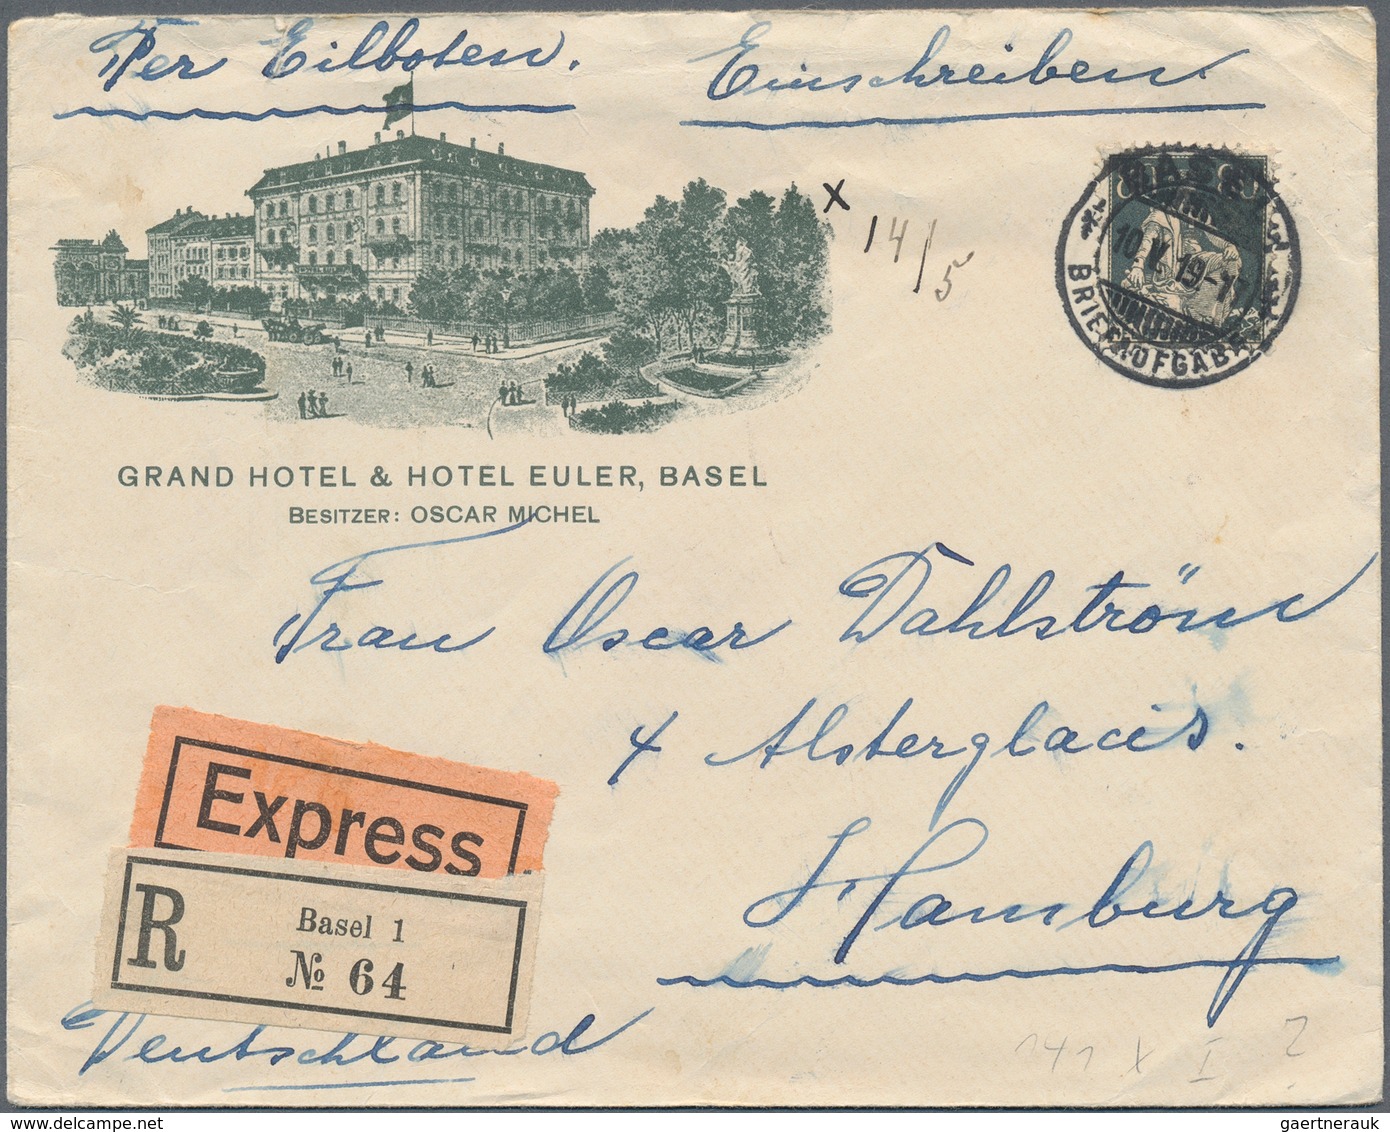 Per Eilboten. Einschreiben.
x 14/5
80
BASEL
10.V.19-17
BRIEFAUFGABE
GRAND HOTEL & HOTEL EULER, BASEL
BESITZER: OSCAR MICHEL
Frau Oscar Dahlström
4 Alsterglacis.
Hamburg
Express
R Basel 1
№ 64
Deutschland
141 x I 2
delcampe.net
gaertnerauk